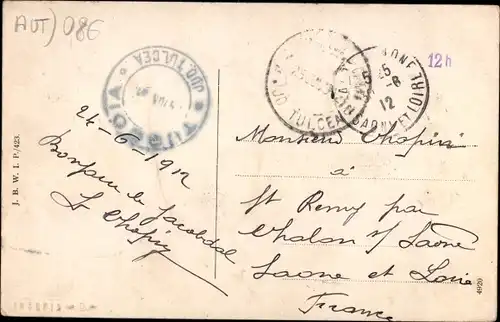 AUT) 086
JUD. TULCEA
24-6-1912
Bonjour de
L. Chopin
J. B. W. I. P./423.
JUD. TULCEA
SAONE
25 -6
12
SAONE ET LOIRE
12h
Monsieur Chopin
à
St Remy par
Chalon s/ Saône
Saone et Loire
France
4920